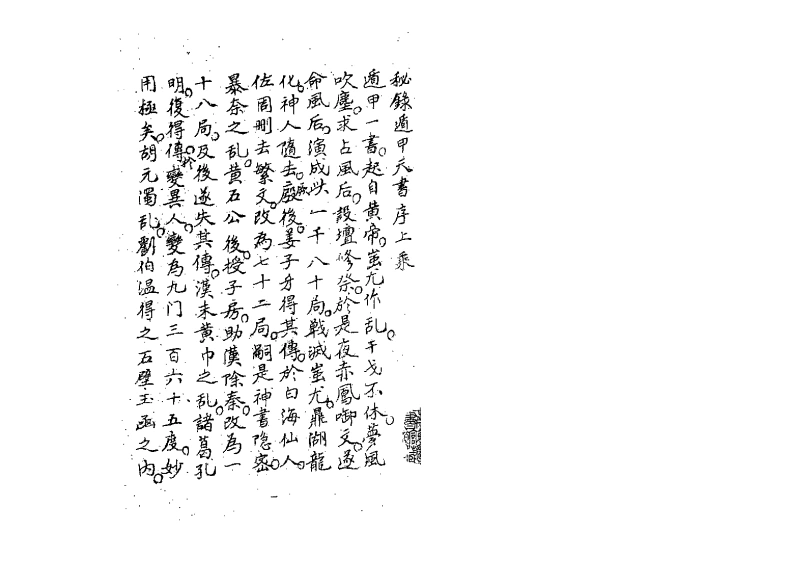 秘錄遁甲天書序上乘
遁甲一書。起自黃帝。蚩尤作乱。干戈不休。夢風
吹塵。求占風后。設壇修祭。於是夜赤鳳啣文。遂
命風后。演成此一千八十局。戰滅蚩尤。鼎湖龍
化。神人隨去。厥後。姜子牙得其傳。於白海仙人。
佐周刪去繁文。改為七十二局。嗣是神書隐密。
暴秦之乱。黃石公後。授子房。助漢除秦。改為一
十八局。及後遂失其傳。漢末黃巾之乱。諸葛孔
明。復得傳。於變異人。變為九门三百六十五度。妙
用極矣。胡元濁乱。劉伯温得之石壁玉函之内。
一